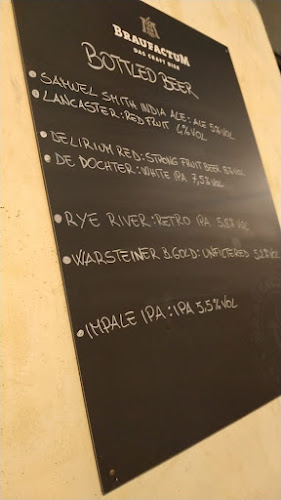 BRAUFACTUM
DAS CRAFT BIER
BOTTLED BEER
• SAMUEL SMITH INDIA ALE: ALE 5%VOL
• LANCASTER: RED FRUIT 4%VOL
• DELIRIUM RED: STRONG FRUIT BEER 8%VOL
• DE DOCHTER: WHITE IPA 7,5%VOL
• RYE RIVER: RETRO IPA 5.8%VOL
• WARSTEINER B.GOLD: UNFILTERED 5.2%VOL
• IMPALE IPA: IPA 5,5%VOL